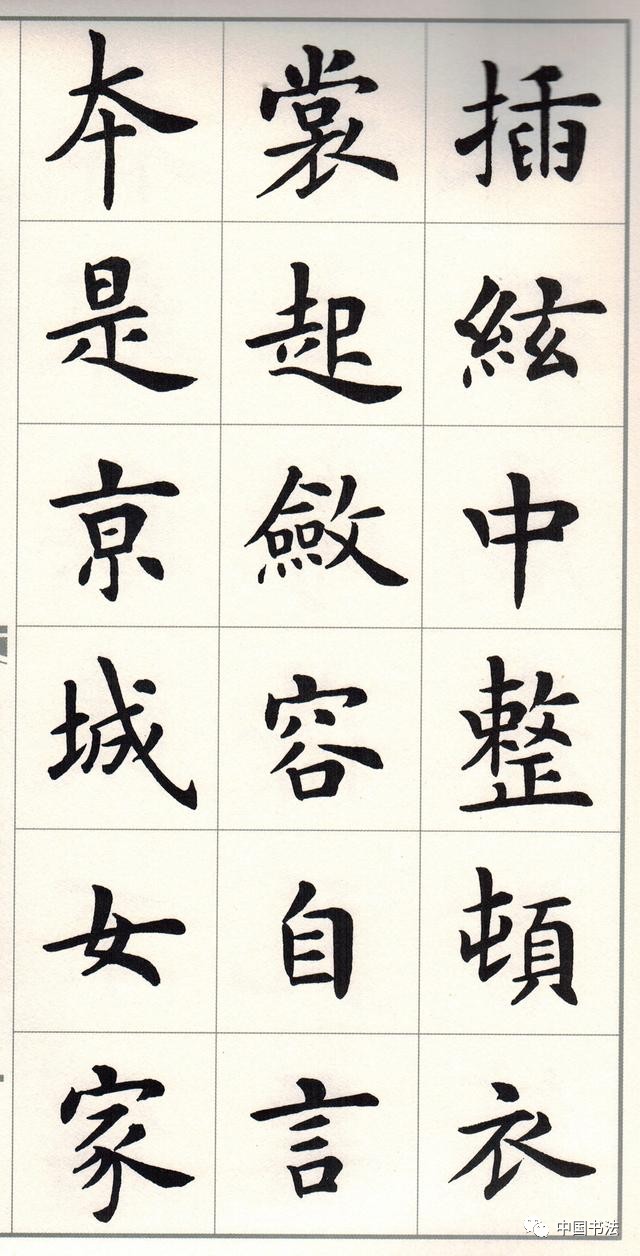 插絃中整頓衣
裳起斂容自言
本是京城女家
中国书法